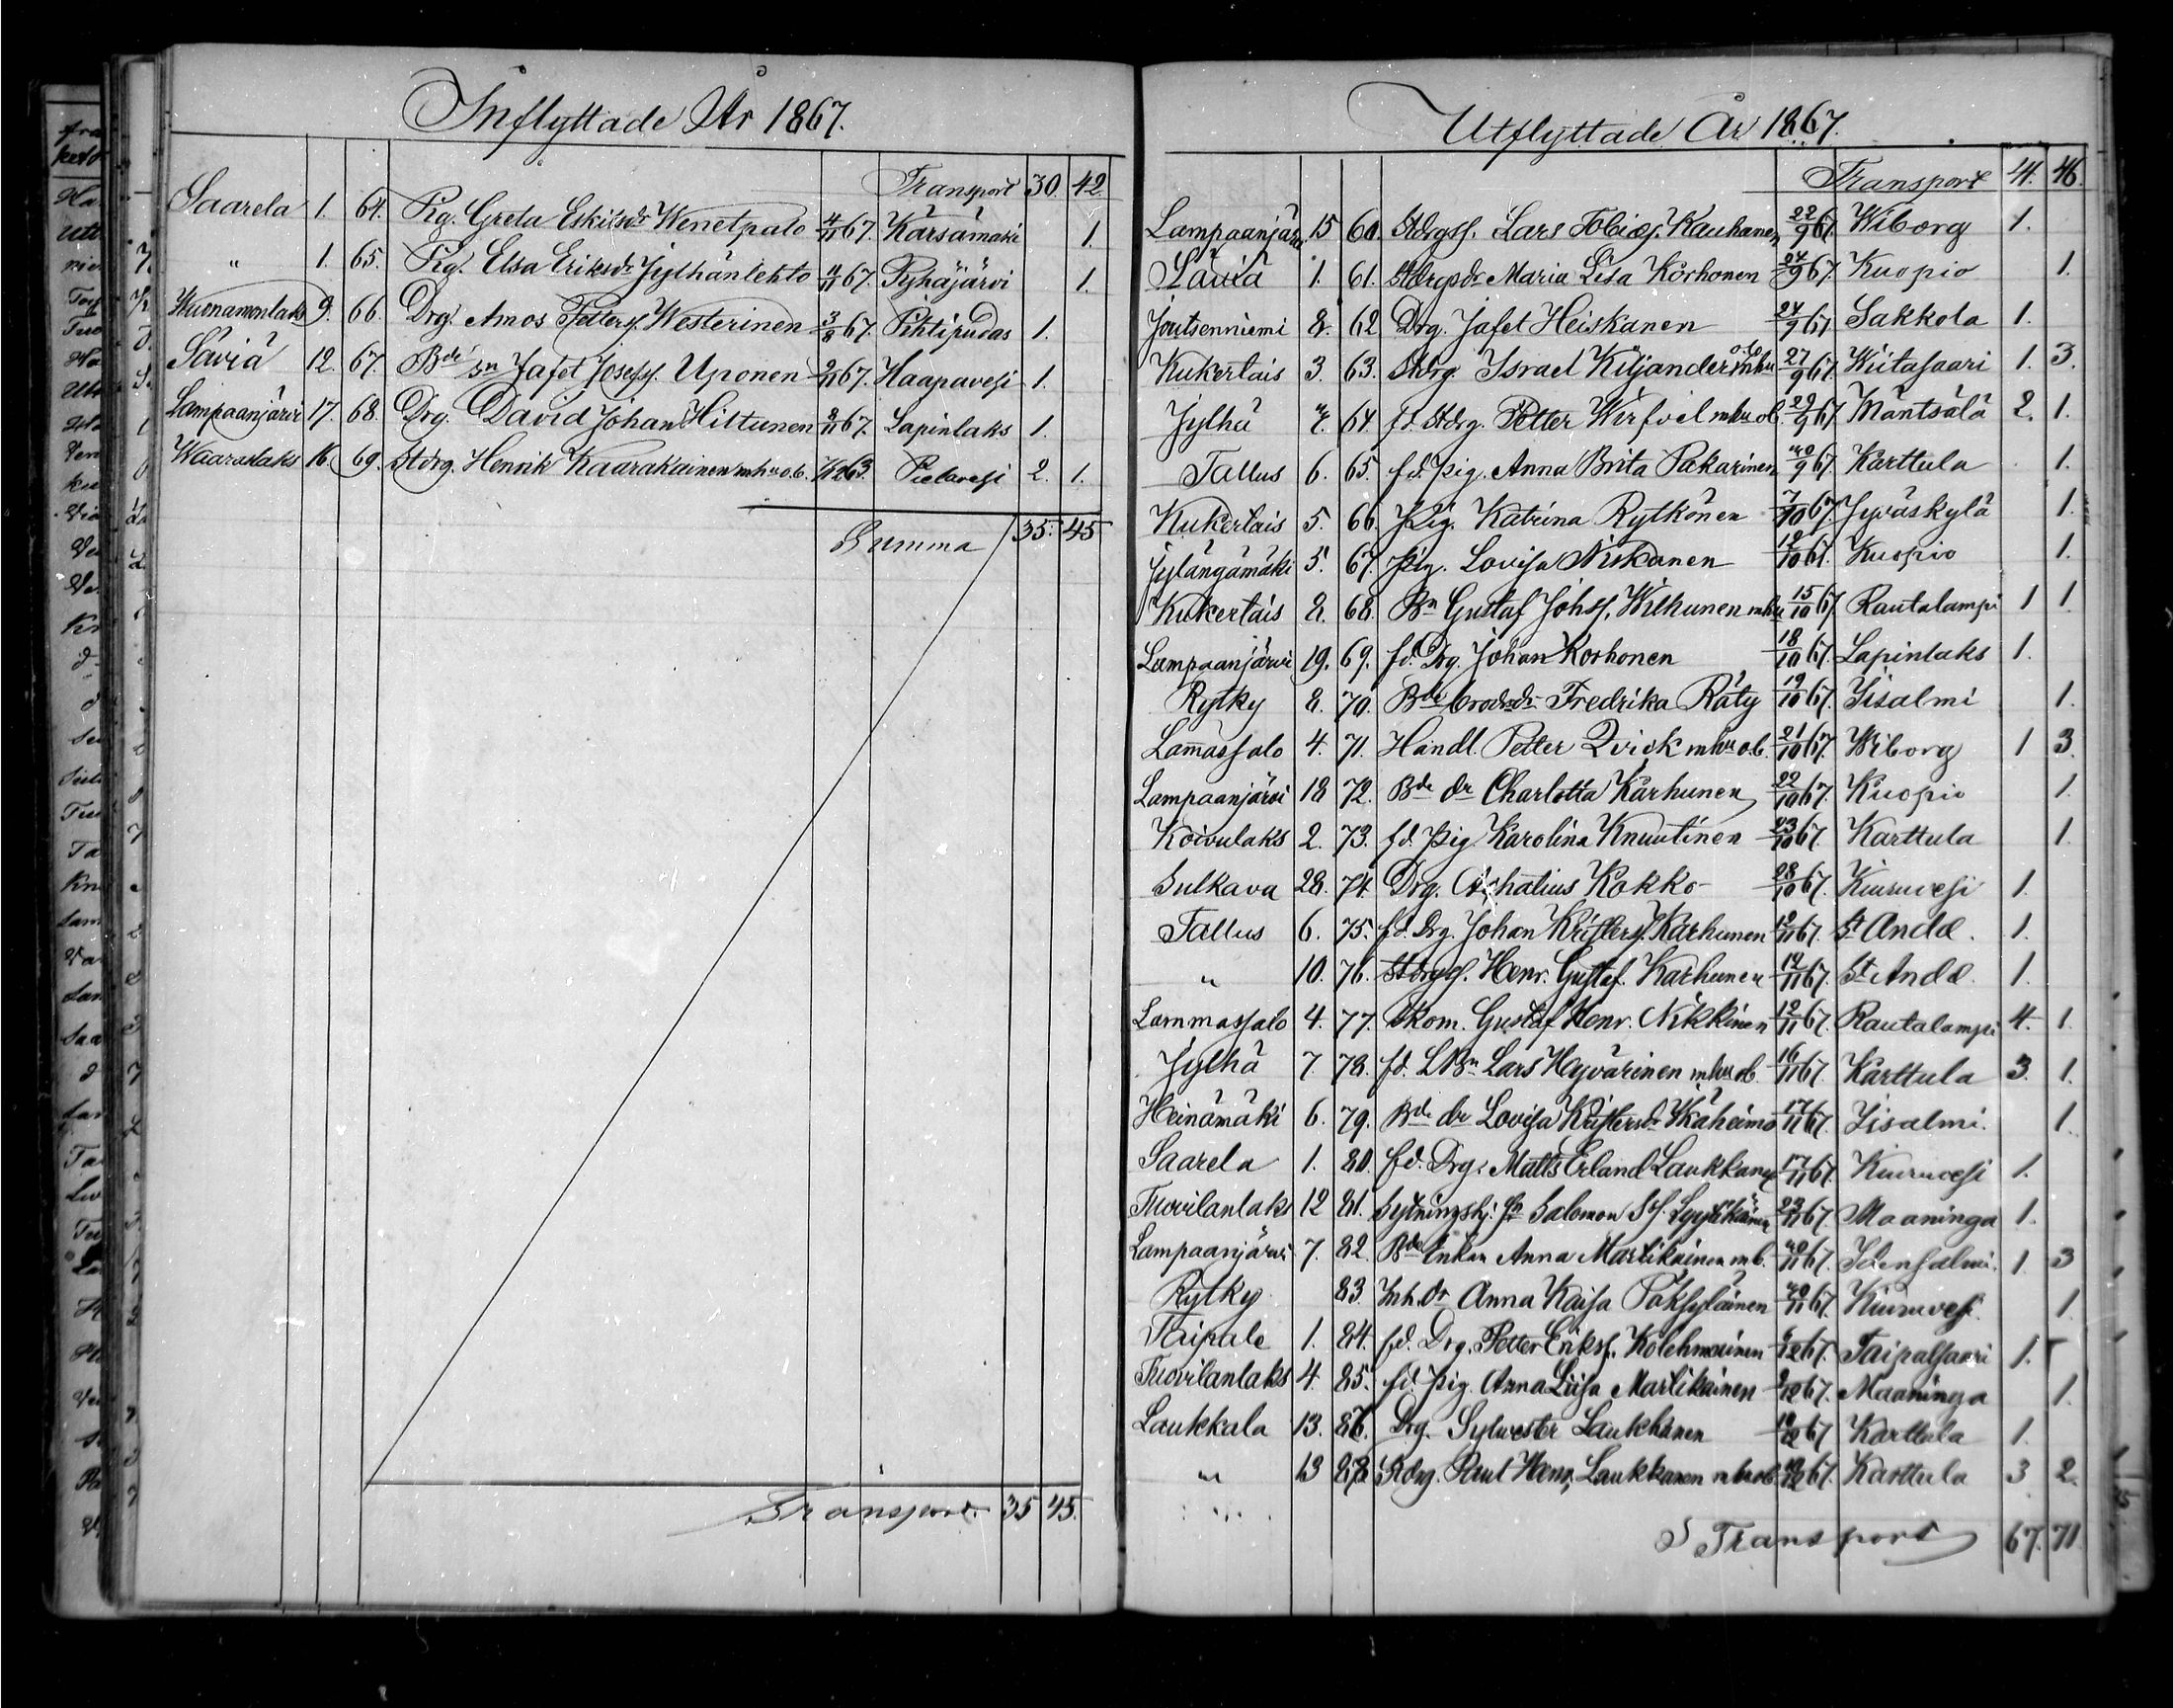 Inflyttade År 1867.
Transport 30. 42.
Saarela 1. 64. Pig. Greta Eskilsdr Wenetpalo 4/11 67. Kärsämäki 1.
" 1. 65. Pig. Elsa Eriksdr Jylhänlehto 4/11 67. Pyhäjärvi 1.
9. 66. Drg. Amos Petterss. Westerinen 3/8 67. Pihtipudas 1.
Säviä 12. 67. Bde sn Jafet Josefss. Uponen 67. Haapavesi 1.
Lampaanjärvi 17. 68. Drg. David Johan Hiltunen 67. Lapinlaks 1.
Waaraslaks 16. 69. Stdrg. Henrik Kaarakainen mhu o b. Pielavesi 2. 1.
Summa 35. 45
Transport. 35 45.
Utflyttade År 1867.
Transport 41. 46.
Lampaanjärvi 15 60. Stdrgss. Lars Tobiass. Kauhanen 22/9 67. Wiborg 1.
Säviä 1. 61. Stdrgsdr Maria Lisa Korhonen 24/9 67. Kuopio 1.
Joutsenniemi 8. 62 Drg. Jafet Heiskanen 24/9 67. Sakkola 1.
Kukertais 3. 63. Stdrg. Israel Kiljander mhu o b 27/9 67. Wiitasaari 1. 3.
Jylhä 64. fd. Stdrg. Petter Wirfvel mhu ob. 29/9 67. Mäntsälä 2. 1.
Tallus 6. 65. fd. pig. Anna Brita Pakarinen 30/9 67. Karttula 1.
Kukertais 5. 66. Pig. Katrina Rytkönen 7/10 67. Jyväskylä 1.
Jylängämäki 5. 67. Pig. Lovisa Niskanen 12/10 67. Kuopio 1.
Kukertais 2. 68. Bn Gustaf Johss. Wilhunen mhu 15/10 67. Rautalampi 1 1.
Lampaanjärvi 19. 69. fd. Drg. Johan Korhonen 18/10 67. Lapinlaks 1.
Rytky 8. 70. Bde brodrsdr Fredrika Räty 19/10 67. Iisalmi 1.
Lamassalo 4. 71. Handl. Petter Qvick mhu o b. 21/10 67. Wiborg 1 3.
Lampaanjärvi 18 72. Bde dr Charlotta Karhunen 22/10 67. Kuopio 1.
Koivulaks 2. 73. fd. pig Karolina Knuutinen 23/10 67. Karttula 1.
Sulkava 28. 74. Drg. Achatius Kokko 28/10 67. Kiuruvesi 1.
Tallus 6. 75. fd. Drg. Johan Kristerss. Karhunen 12/11 67. St. Andd. 1.
" 10. 76. Stdrgss. Henr. Gustaf. Karhunen 67. St. Andd 1.
Lammassalo 4. 77. Skom. Gustaf Henr. Nikkinen 12/11 67. Rautalampi 4. 1.
Jylhä 7 78. fd. LBn Lars Hyvärinen mhu ob. 16/11 67. Karttula 3. 1.
Heinämäki 6. 79. Bde dr Lovisa Kristersdr Wäheimo 17/11 67. Iisalmi. 1.
Saarela 1. 80. fd. Drg. Matts Erland Laukkanen 17/11 67. Kiuruvesi 1.
Tuovilanlaks 12 81. Sytningshj. sn Salomon 67. Maaninga 1.
Lampaanjärvi 7. 82. Bde Enkan Anna Martikainen m b. 30/11 67. Idensalmi. 1. 3
Rytky 83. Inh. dr Anna Kaisa 30/11 67. Kiuruvesi. 1.
Taipale 1. 84. fd. Drg. Petter Erikss. Kolehmainen 67. Taipalsaari 1.
Tuovilanlaks 4. 85. fd. pig. Anna Liisa Martikainen 67. Maaninga 1.
Laukkala 13. 86. Drg. Sylvester Laukkanen 67 Karttula 1.
" 13 87. Stdrg. Paul Henr. Laukkanen mhu ob 67. Karttula 3 2.
Transport 67. 71